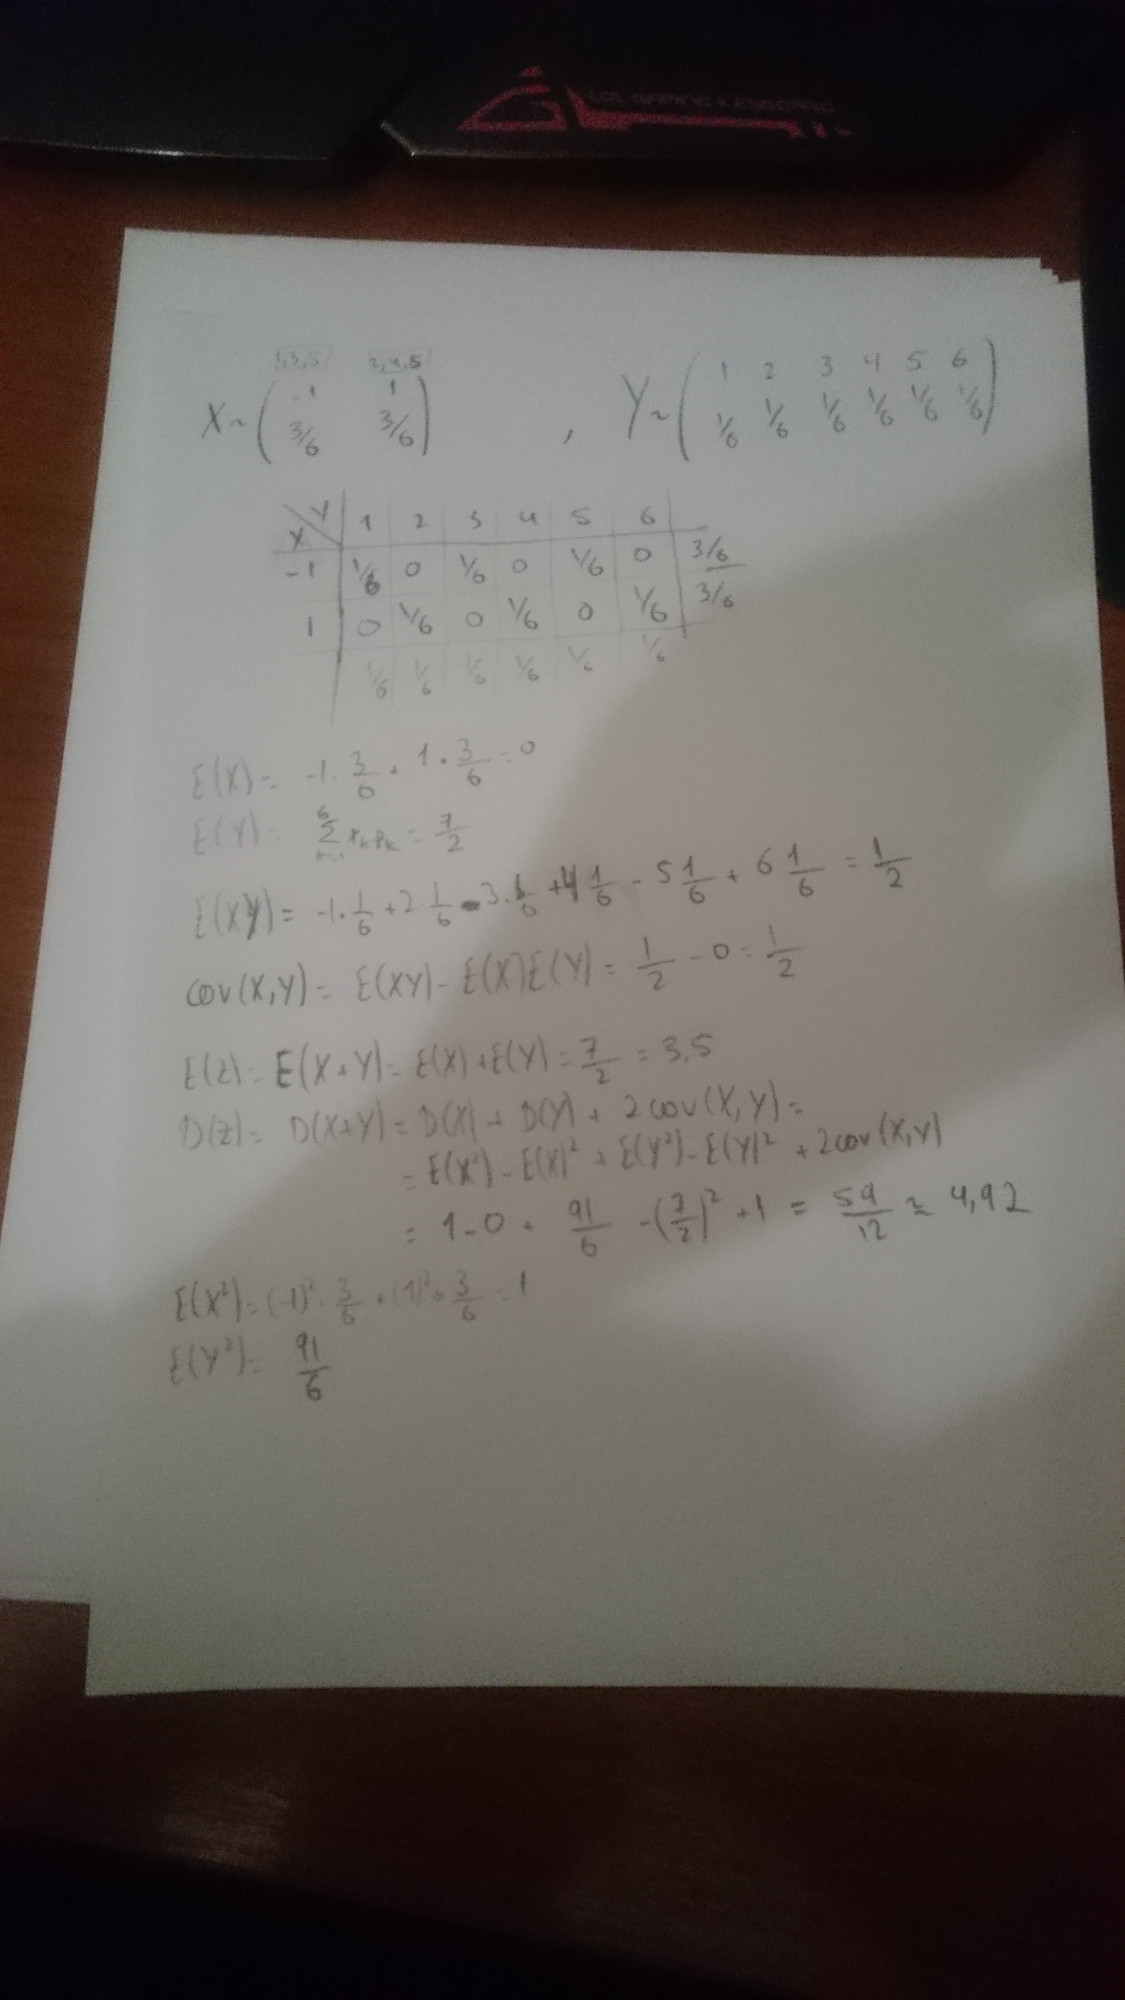 GAMING KEYBOARD
1,3,5 2,4,5
X ~ ( -1 1 ; 3/6 3/6 ) , Y ~ ( 1 2 3 4 5 6 ; 1/6 1/6 1/6 1/6 1/6 1/6 )
X\Y 1 2 3 4 5 6
-1 1/6 0 1/6 0 1/6 0 3/6
1 0 1/6 0 1/6 0 1/6 3/6
1/6 1/6 1/6 1/6 1/6 1/6
E(X) = -1 · 3/6 + 1 · 3/6 = 0
E(Y) = ∑_{k=1}^{6} x_k p_k = 7/2
E(XY) = -1 · 1/6 + 2 1/6 - 3 · 1/6 + 4 1/6 - 5 1/6 + 6 1/6 = 1/2
cov(X,Y) = E(XY) - E(X)E(Y) = 1/2 - 0 = 1/2
E(Z) = E(X+Y) = E(X) + E(Y) = 7/2 = 3,5
D(Z) = D(X+Y) = D(X) + D(Y) + 2cov(X,Y) =
= E(X²) - E(X)² + E(Y²) - E(Y)² + 2cov(X,Y)
= 1 - 0 + 91/6 - (7/2)² + 1 = 59/12 ≈ 4,92
E(X²) = (-1)² · 3/6 + (1)² · 3/6 = 1
E(Y²) = 91/6